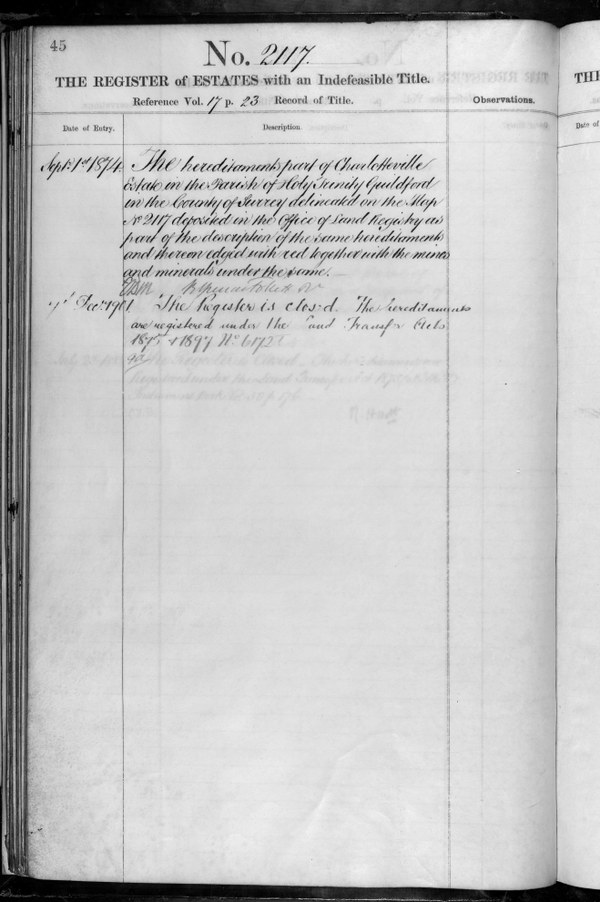 45
No. 2117.
THE REGISTER of ESTATES with an Indefeasible Title.
Reference Vol. 17 p. 23 Record of Title.
Observations.
Date of Entry.
Description.
Sept. 1st 1874.
The hereditaments part of Charlotteville
Estate in the Parish of Holy Trinity Guildford
in the County of Surrey delineated on the Map
No 2117 deposited in the Office of Land Registry as
part of the description of the same hereditaments
and thereon edged with red together with the mines
and minerals under the same.
Decr. 1901
The Register is closed. The hereditaments
are registered under the Land Transfer Acts
1875 & 1897 No
THE
Date of